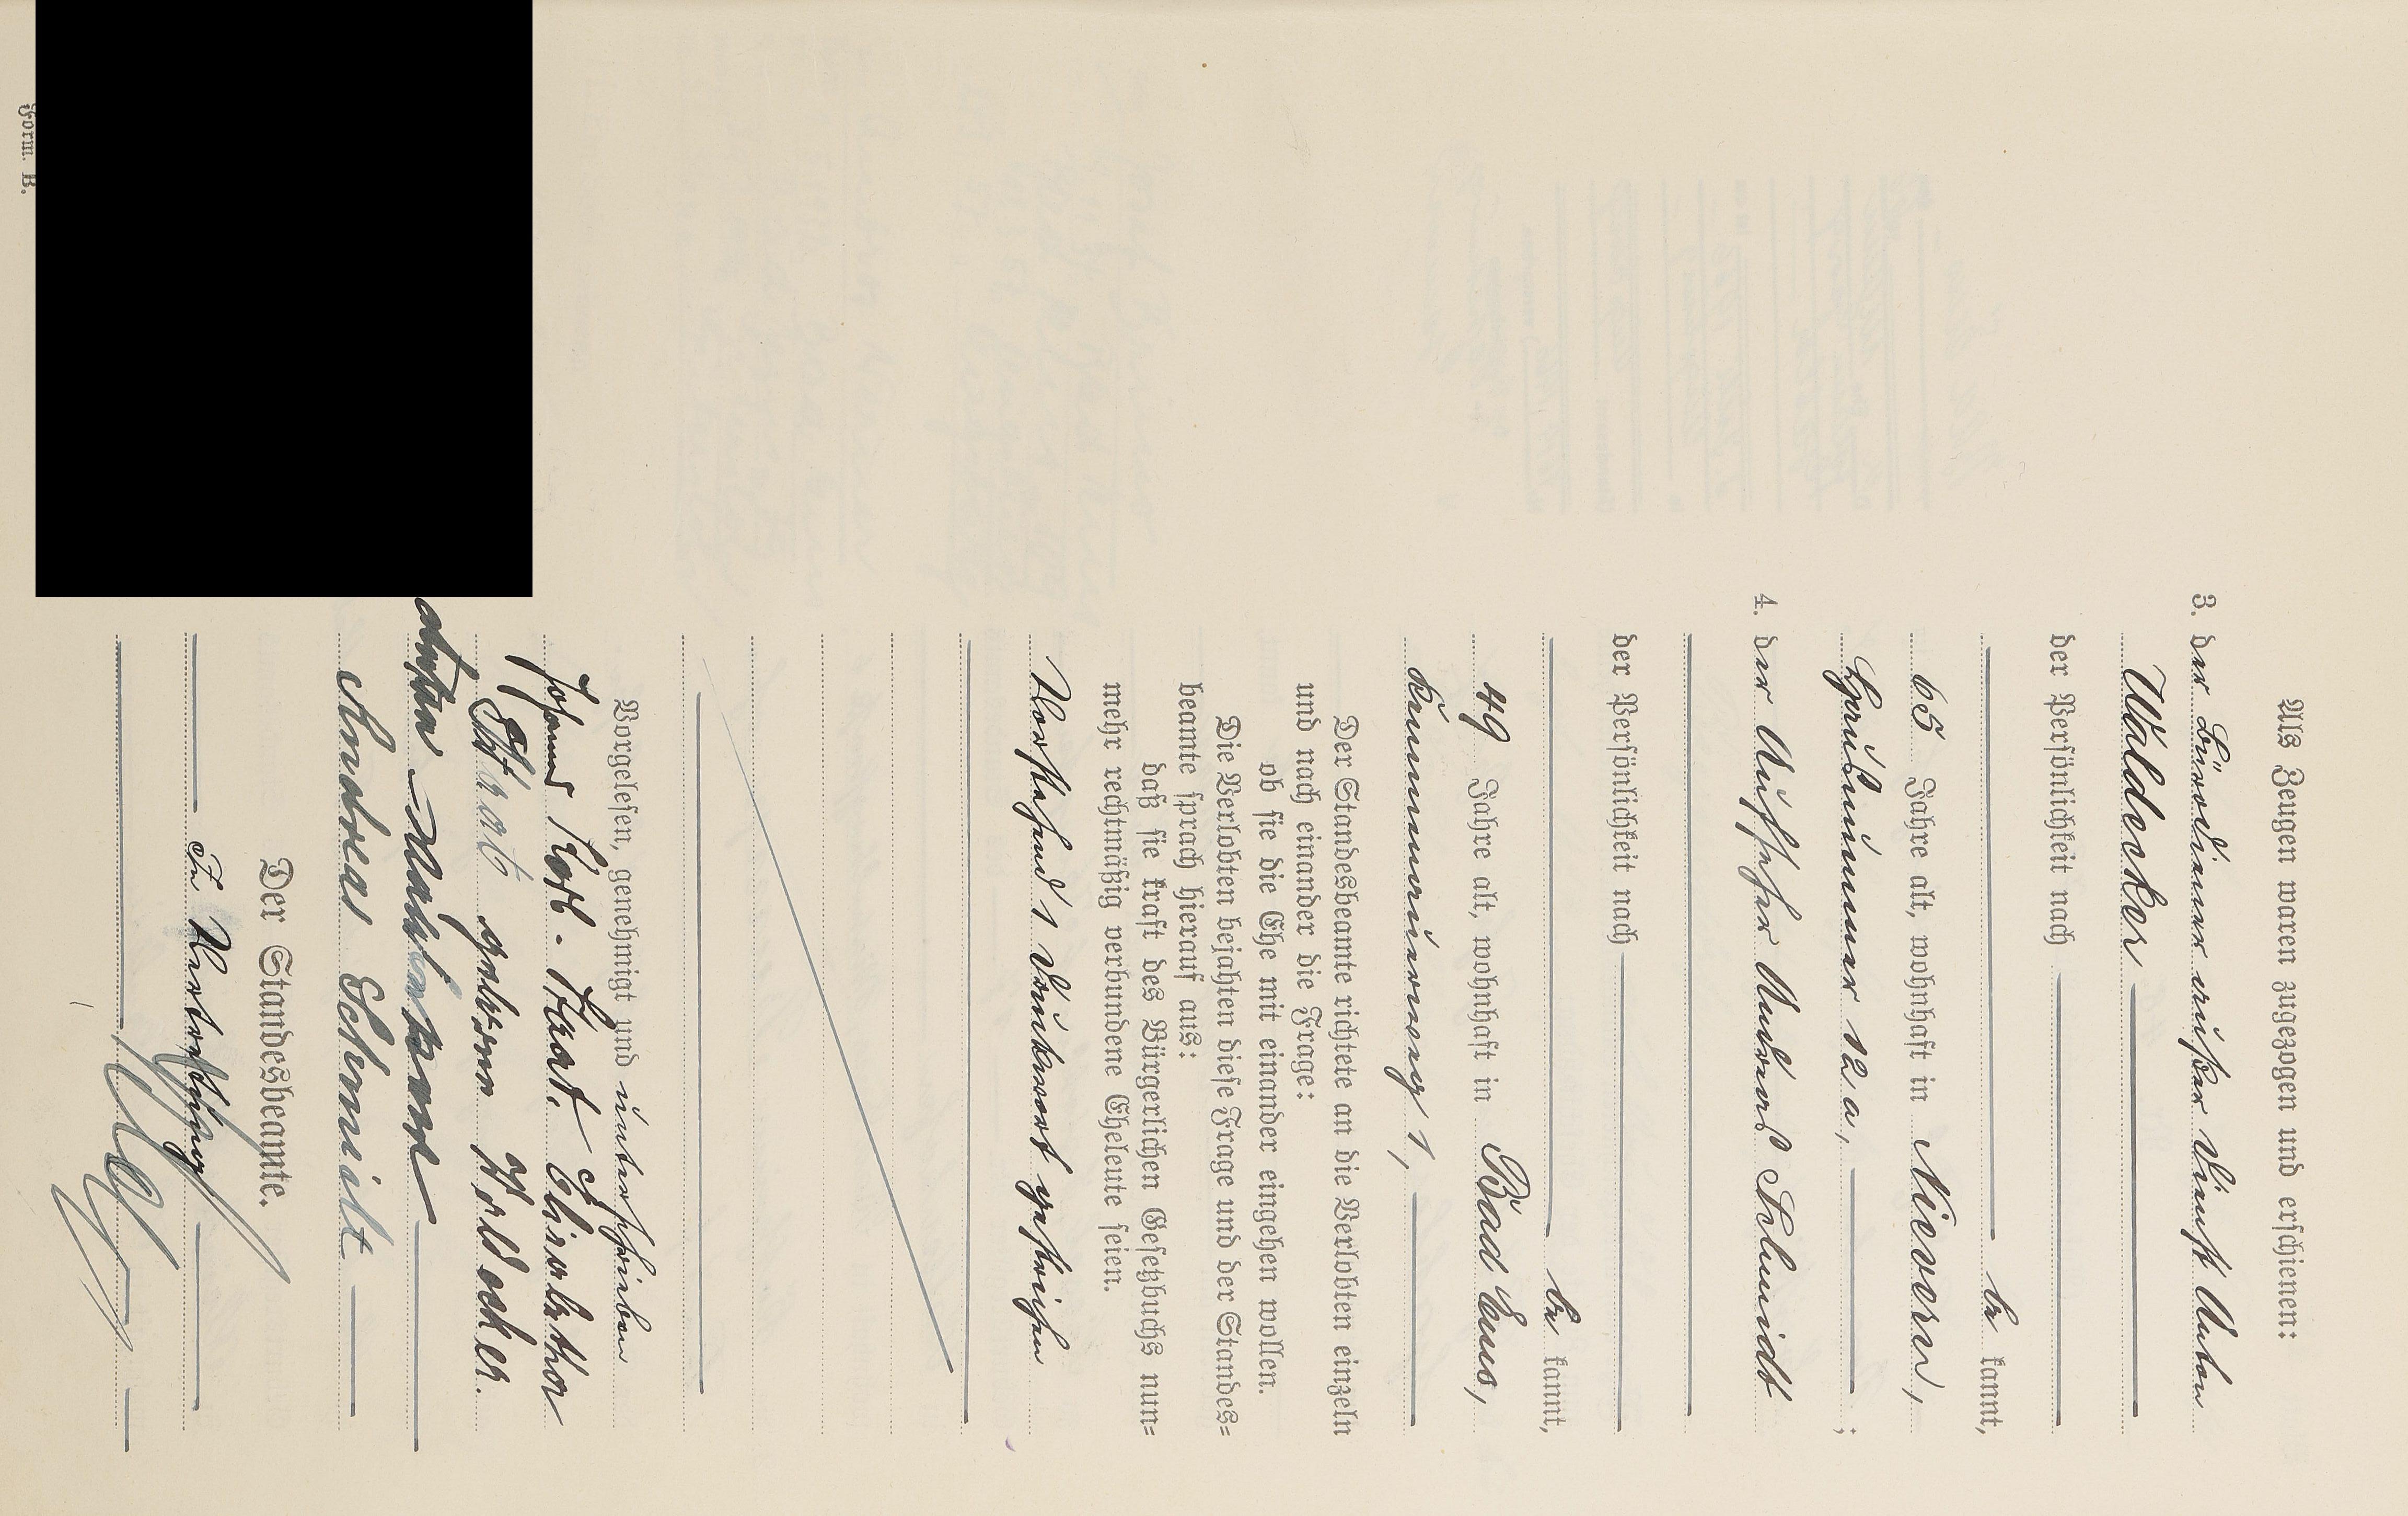 Als Zeugen waren zugezogen und erschienen:
3. der Bürodiener außer Dienst Anton
Waldecker
der Persönlichkeit nach
be kannt,
65 Jahre alt, wohnhaft in Nievern,
12 a, ;
4. der Andreas Schmidt
der Persönlichkeit nach
be kannt,
49 Jahre alt, wohnhaft in Bad Ems,
1,
Der Standesbeamte richtete an die Verlobten einzeln
und nach einander die Frage:
ob sie die Ehe mit einander eingehen wollen.
Die Verlobten bejahten diese Frage und der Standes=
beamte sprach hierauf aus:
daß sie kraft des Bürgerlichen Gesetzbuchs nun=
mehr rechtmäßig verbundene Eheleute seien.
Vorstehend 1 Druckwort gestrichen
Vorgelesen, genehmigt und unterschrieben
Johann Elisabetha
geborene Waldecker.
Anton Waldecker
Andreas Schmidt
Der Standesbeamte.
In Vertretung
Form. B.